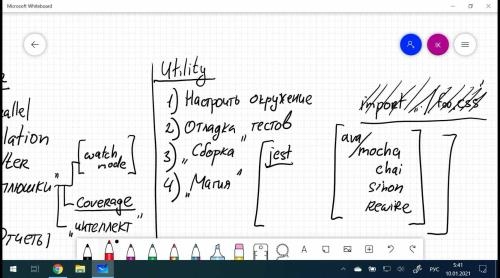 Microsoft Whiteboard
IK
Utility
1) Настроить окружение
2) Отладка тестов
3) „Сборка"
4) „Магия"
watch
mode
Coverage
"интеллект"
jest
import
ava/
mocha
chai
sinon
Rewire
РУС
5:41
10.01.2021